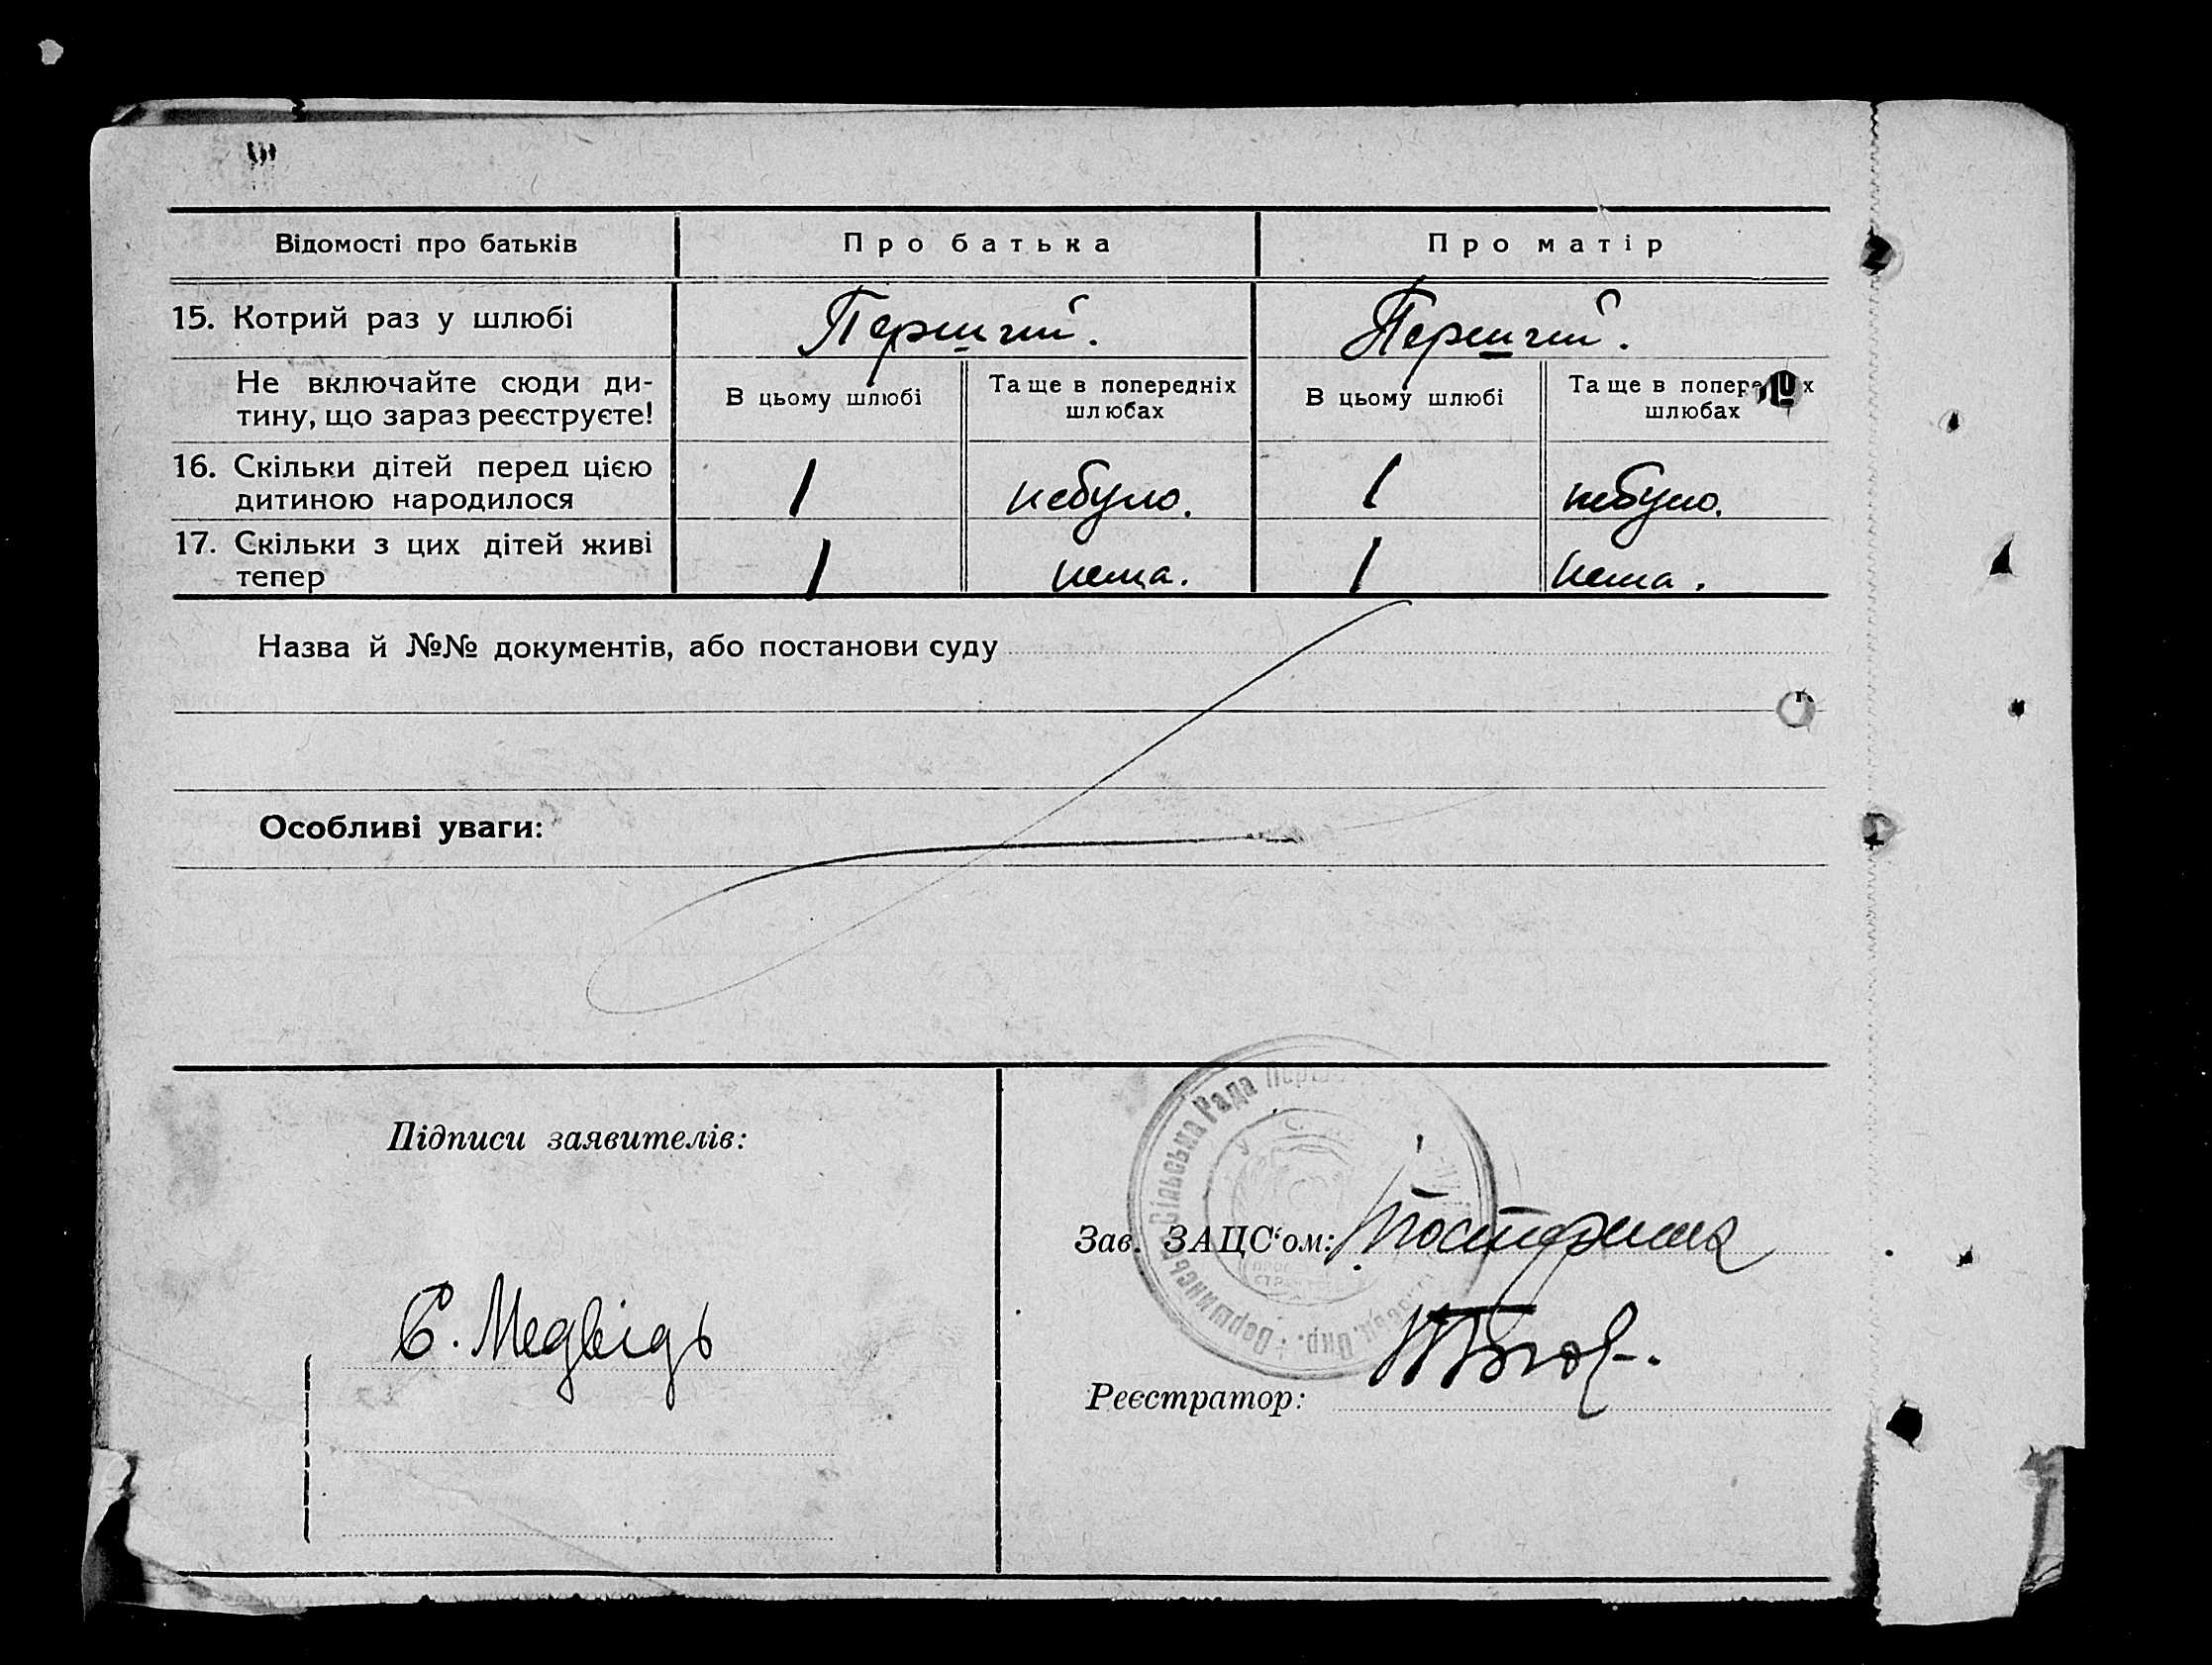 Відомості про батьків Про батька Про матір
15. Котрий раз у шлюбі Перший. Перший.
Не включайте сюди ди-
тину, що зараз реєструєте!
В цьому шлюбі
Та ще в попередніх
шлюбах
В цьому шлюбі
Та ще в попере х
шлюбах
16. Скільки дітей перед цією
дитиною народилося
1 небуло. 1 небуло.
17. Скільки з цих дітей живі
тепер
1 нема. 1 нема.
Назва й №№ документів, або постанови суду
Особливі уваги:
Підписи заявителів:
Є. Медвідь
Сільська Рада
Зав. ЗАЦС'ом:
Реєстратор: